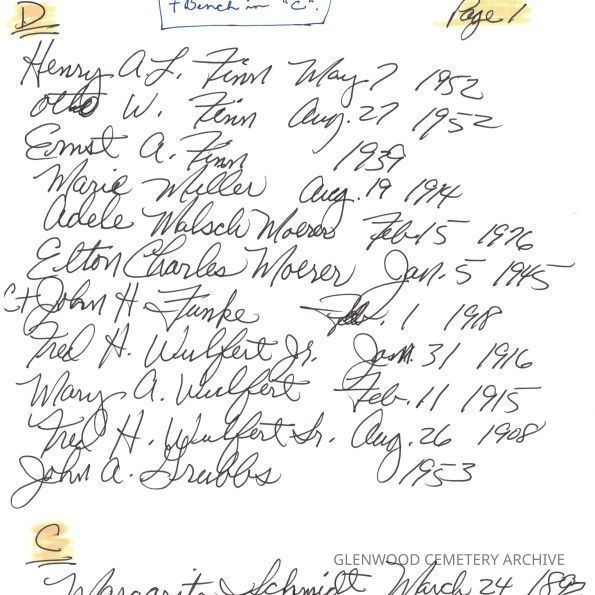 + Bench in "C".
D
Page 1
Henry A. L. Finn May 7 1952
Otto W. Finn Aug. 27 1952
Ernst A. Finn 1939
Marie Miller Aug. 19 1914
Adele Walsch Moerer Feb 15 1976
Elton Charles Moerer Jan. 5 1945
C+ John H Funke Feb. 1 1918
Fred H. Wulfert Jr. Jan. 31 1916
Mary A. Wulfert Feb. 11 1915
Fred H. Wulfert Sr. Aug. 26 1908
John A. Grubbs 1953
C
GLENWOOD CEMETERY ARCHIVE
Margarita Schmidt March 24